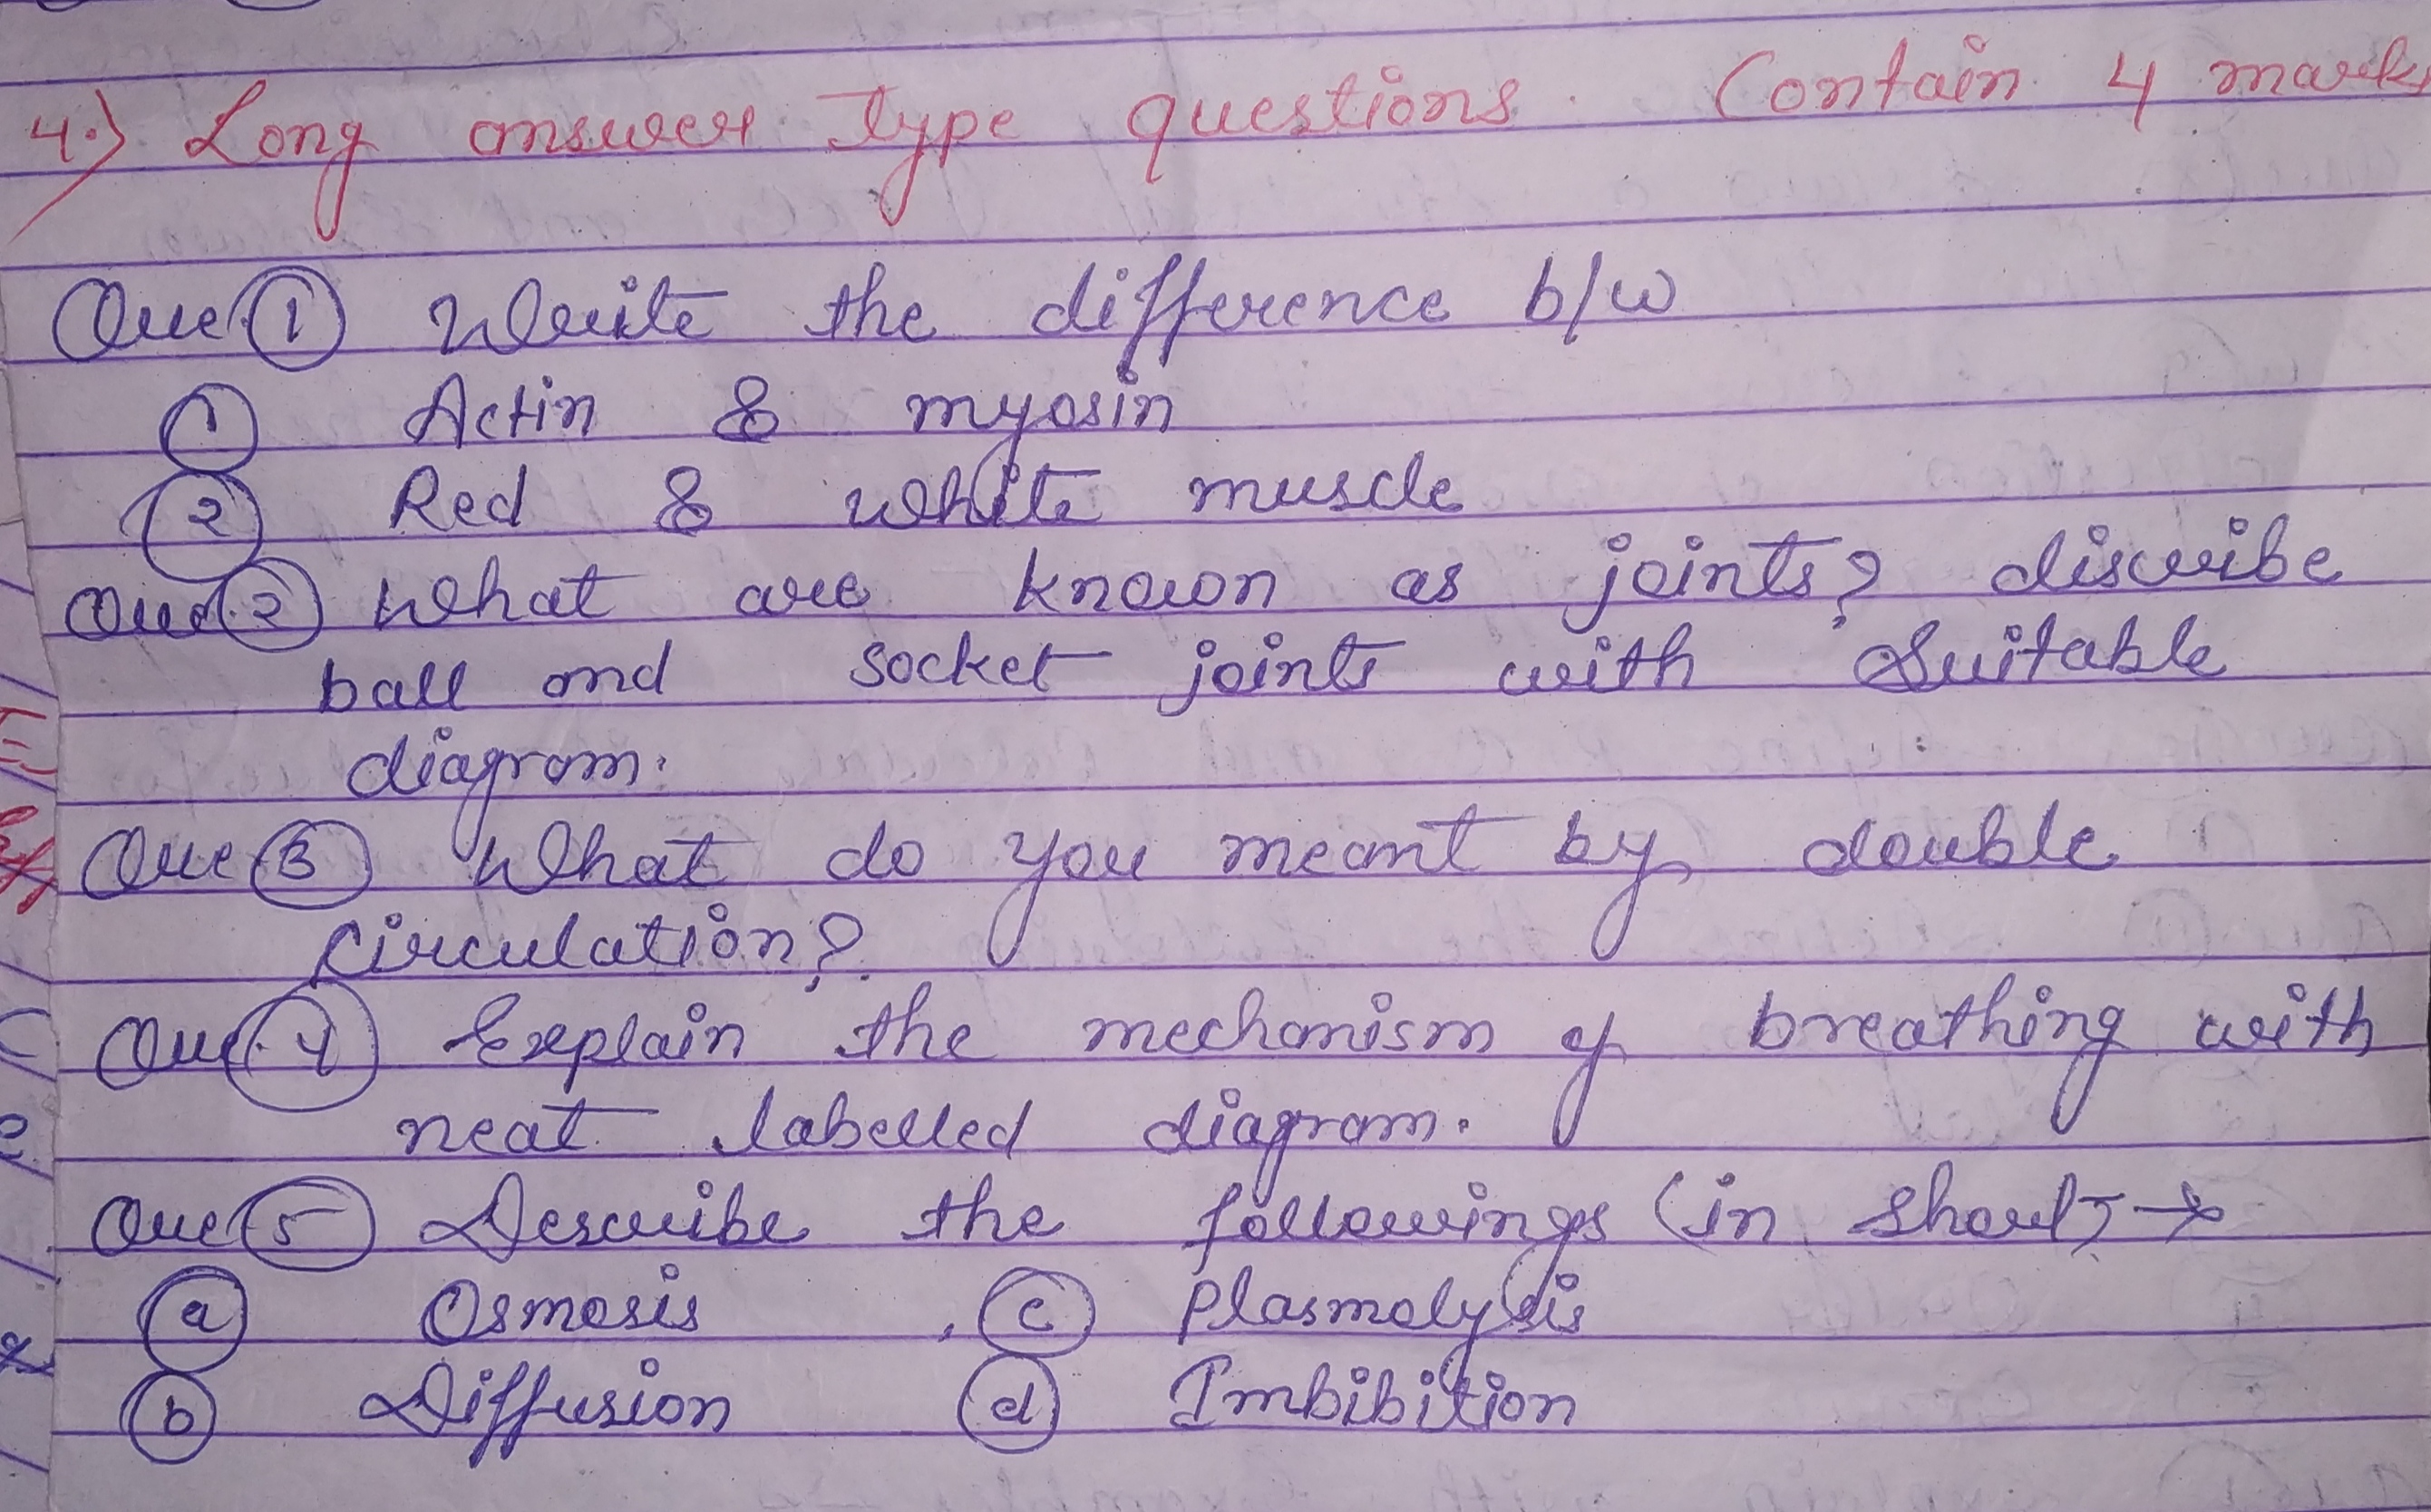 4.) Long answer type questions. Contain 4 marks
Que.① Write the difference b/w
① Actin & myosin
② Red & white muscle
Que.② What are known as joints? discribe
ball and socket joints with suitable
diagram.
Que.③ What do you meant by double
circulation?
Que.④ Explain the mechanism of breathing with
neat labelled diagram.
Que.⑤ Describe the followings (in short) →
ⓐ Osmosis , ⓒ Plasmolysis
ⓑ Diffusion ⓓ Imbibition